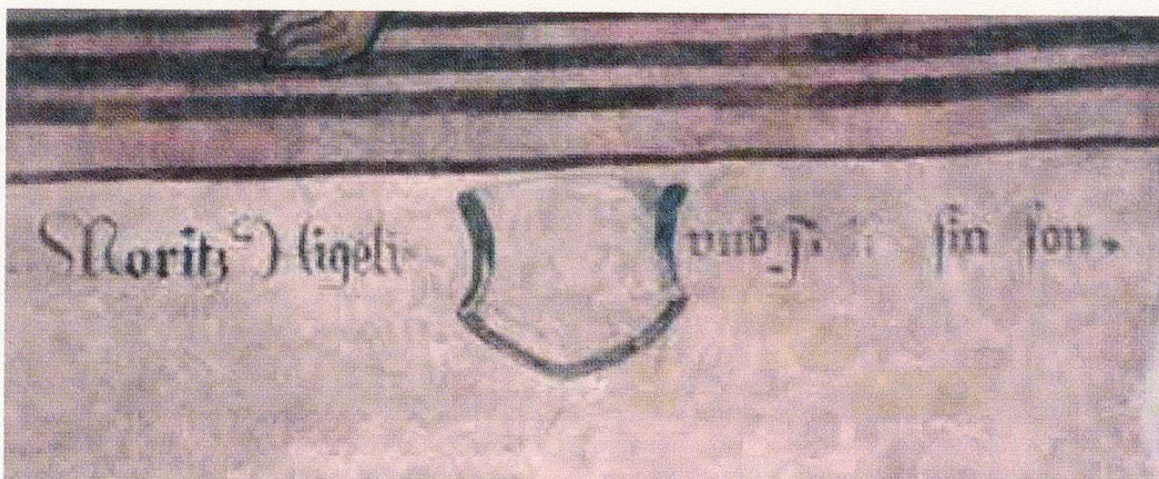 Moritz ligeli vnd sin son.